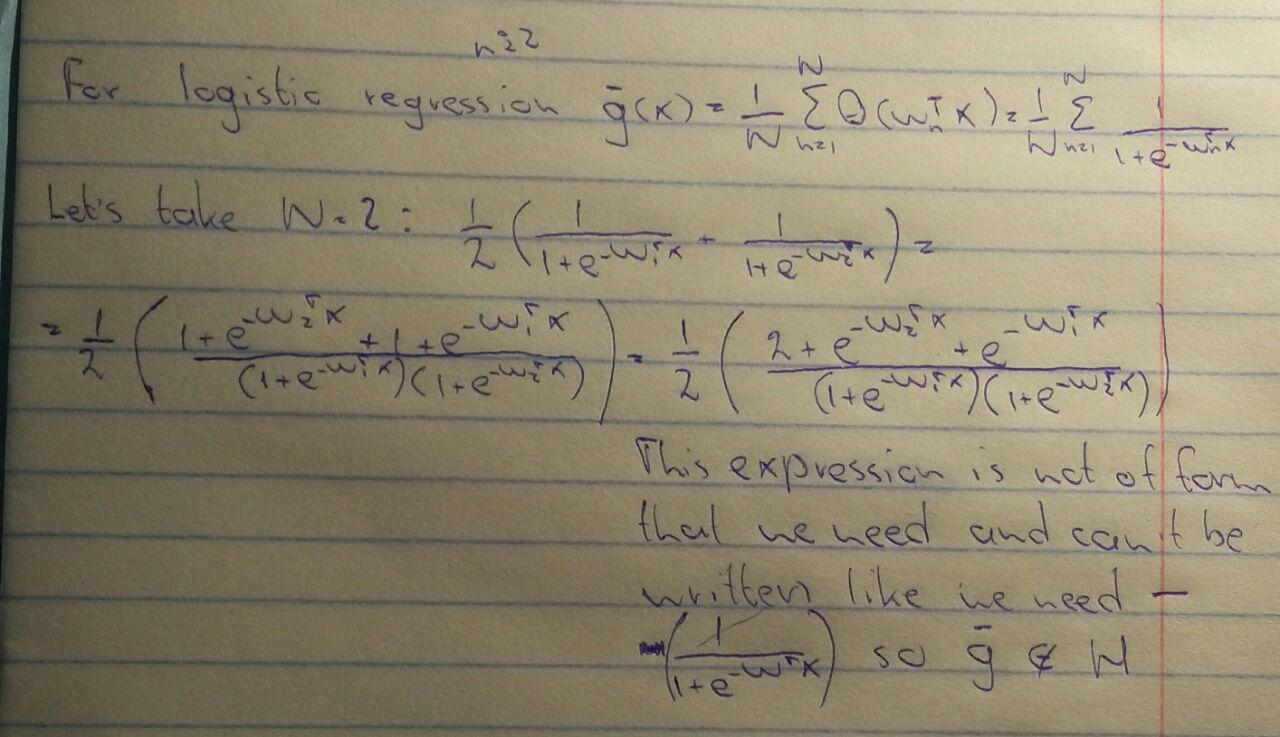 n≥2
For logistic regression ḡ(x) = 1/N Σ_{n=1}^{N} θ(w_n^T x) = 1/N Σ_{n=1}^{N} 1/(1+e^{-w_n^T x})
Let's take N=2: 1/2 (1/(1+e^{-w_1^T x}) + 1/(1+e^{-w_2^T x})) =
= 1/2 ((1+e^{-w_2^T x}+1+e^{-w_1^T x})/((1+e^{-w_1^T x})(1+e^{-w_2^T x}))) = 1/2 ((2+e^{-w_2^T x}+e^{-w_1^T x})/((1+e^{-w_1^T x})(1+e^{-w_2^T x})))
This expression is not of form
that we need and can't be
written like we need —
(1/(1+e^{-w^T x})) so ḡ ∉ H